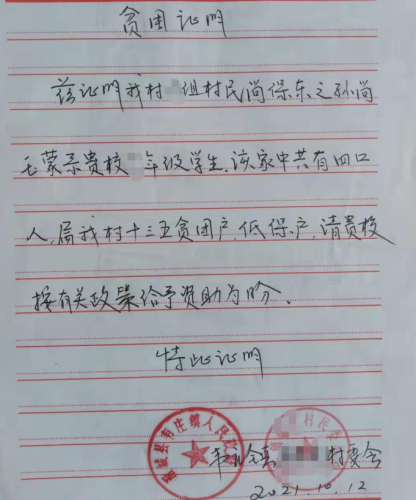 贫困证明
兹证明我村 组村民尚保东之孙尚
毛蒙系贵校 年级学生,该家中共有四口
人,属我村十三五贫困户,低保户,请贵校
按有关政策给予资助为盼。
特此证明
县 庄镇人民
村民
镇 村委会
2021.10.12